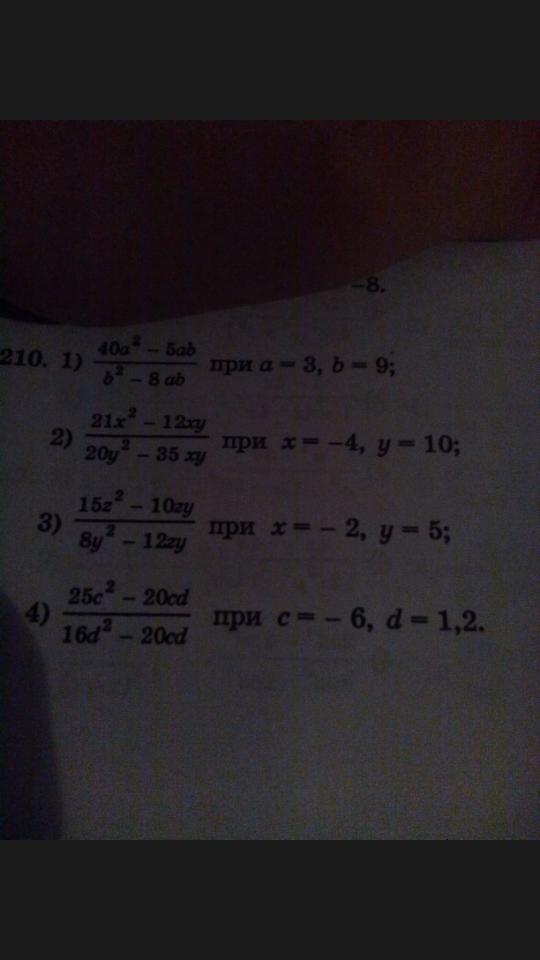 -8.
210. 1) 40a² - 5ab / b² - 8 ab при a = 3, b = 9;
2) 21x² - 12xy / 20y² - 35 xy при x = -4, y = 10;
3) 15z² - 10zy / 8y² - 12zy при x = - 2, y = 5;
4) 25c² - 20cd / 16d² - 20cd при c = - 6, d = 1,2.